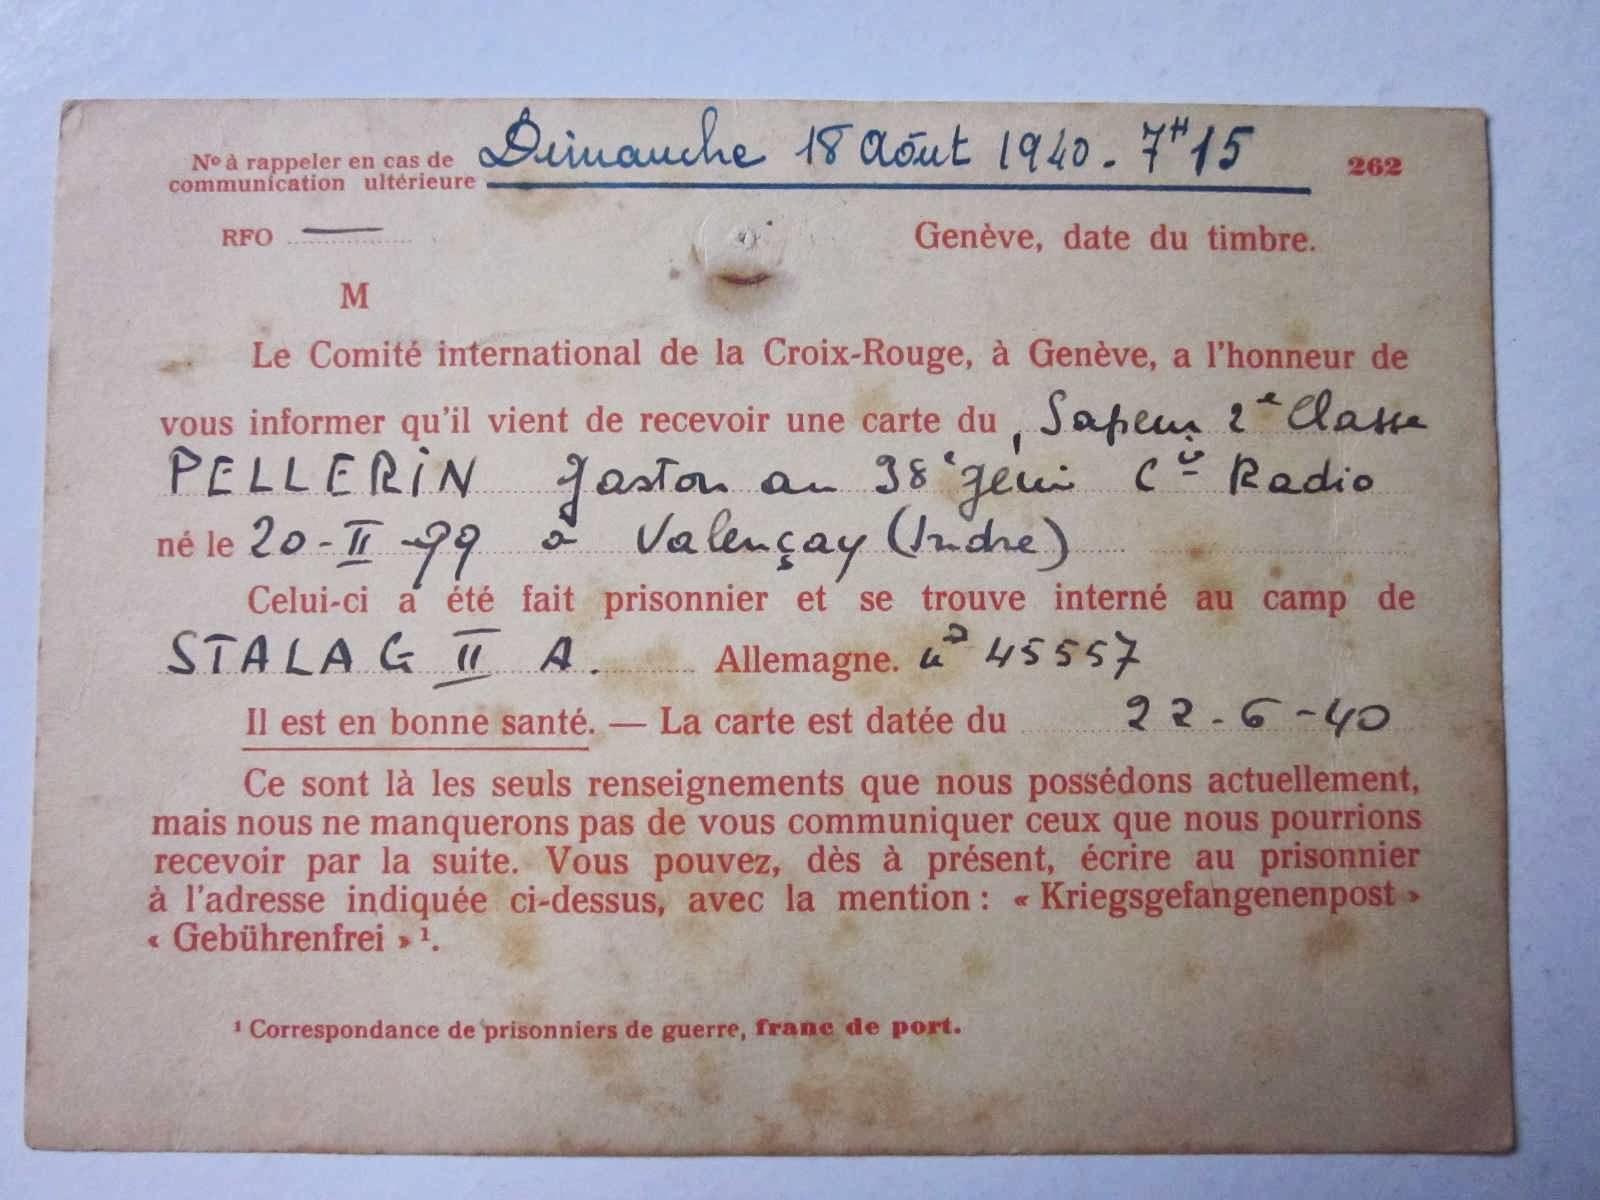 Dimanche 18 Août 1940. 7H15
Nº à rappeler en cas de
communication ultérieure
262
RFO
Genève, date du timbre.
M
Le Comité international de la Croix-Rouge, à Genève, a l'honneur de
vous informer qu'il vient de recevoir une carte du Sapeur 2e Classe
PELLERIN Gaston au 38e Génie Cie Radio
né le 20-II-99 à Valençay (Indre)
Celui-ci a été fait prisonnier et se trouve interné au camp de
STALAG II A. Allemagne. nº 45557
Il est en bonne santé. — La carte est datée du 22-6-40
Ce sont là les seuls renseignements que nous possédons actuellement,
mais nous ne manquerons pas de vous communiquer ceux que nous pourrions
recevoir par la suite. Vous pouvez, dès à présent, écrire au prisonnier
à l'adresse indiquée ci-dessus, avec la mention : « Kriegsgefangenenpost »
« Gebührenfrei » ¹.
¹ Correspondance de prisonniers de guerre, franc de port.